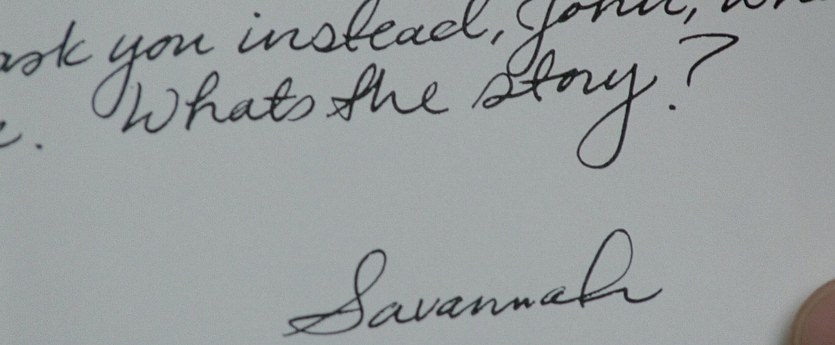 ask you instead, John,
e. Whats the story?
Savannah